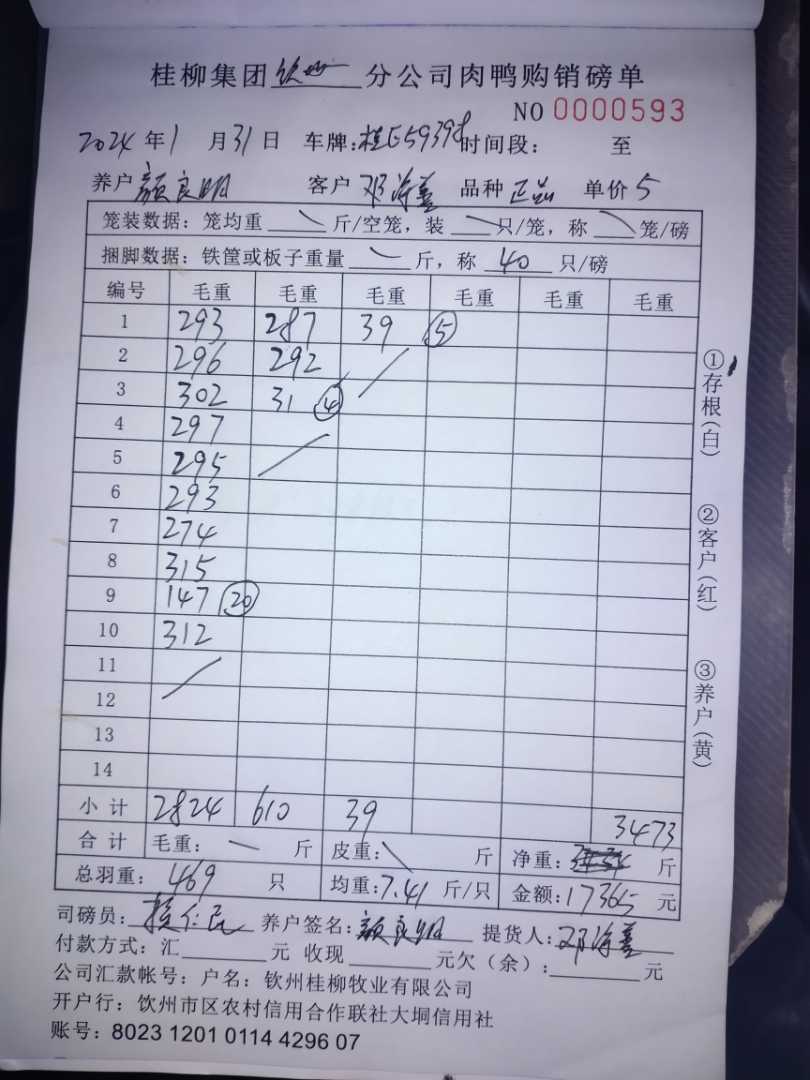 桂柳集团钦州分公司肉鸭购销磅单
NO 0000593
2024年1月31日 车牌:桂E5939 时间段: 至
养户 颜良明 客户 邓海 品种 正品 单价 5
笼装数据:笼均重 斤/空笼,装 只/笼,称 笼/磅
捆脚数据:铁筐或板子重量 斤,称 40 只/磅
编号 毛重 毛重 毛重 毛重 毛重 毛重
1 293 287 39 ⑤
2 296 292
3 302 31 ④
4 297
5 295
6 293
7 274
8 315
9 147 ⑳
10 312
11
12
13
14
小计 2824 610 39 3473
合计 毛重: 斤 皮重: 斤 净重: 斤
总羽重: 469 只 均重:7.41 斤/只 金额:17365 元
司磅员: 养户签名:颜良明 提货人:邓海
付款方式:汇 元 收现 元欠(余): 元
公司汇款帐号:户名:钦州桂柳牧业有限公司
开户行:钦州市区农村信用合作联社大垌信用社
账号:8023 1201 0114 4296 07
①存根(白)
②客户(红)
③养户(黄)